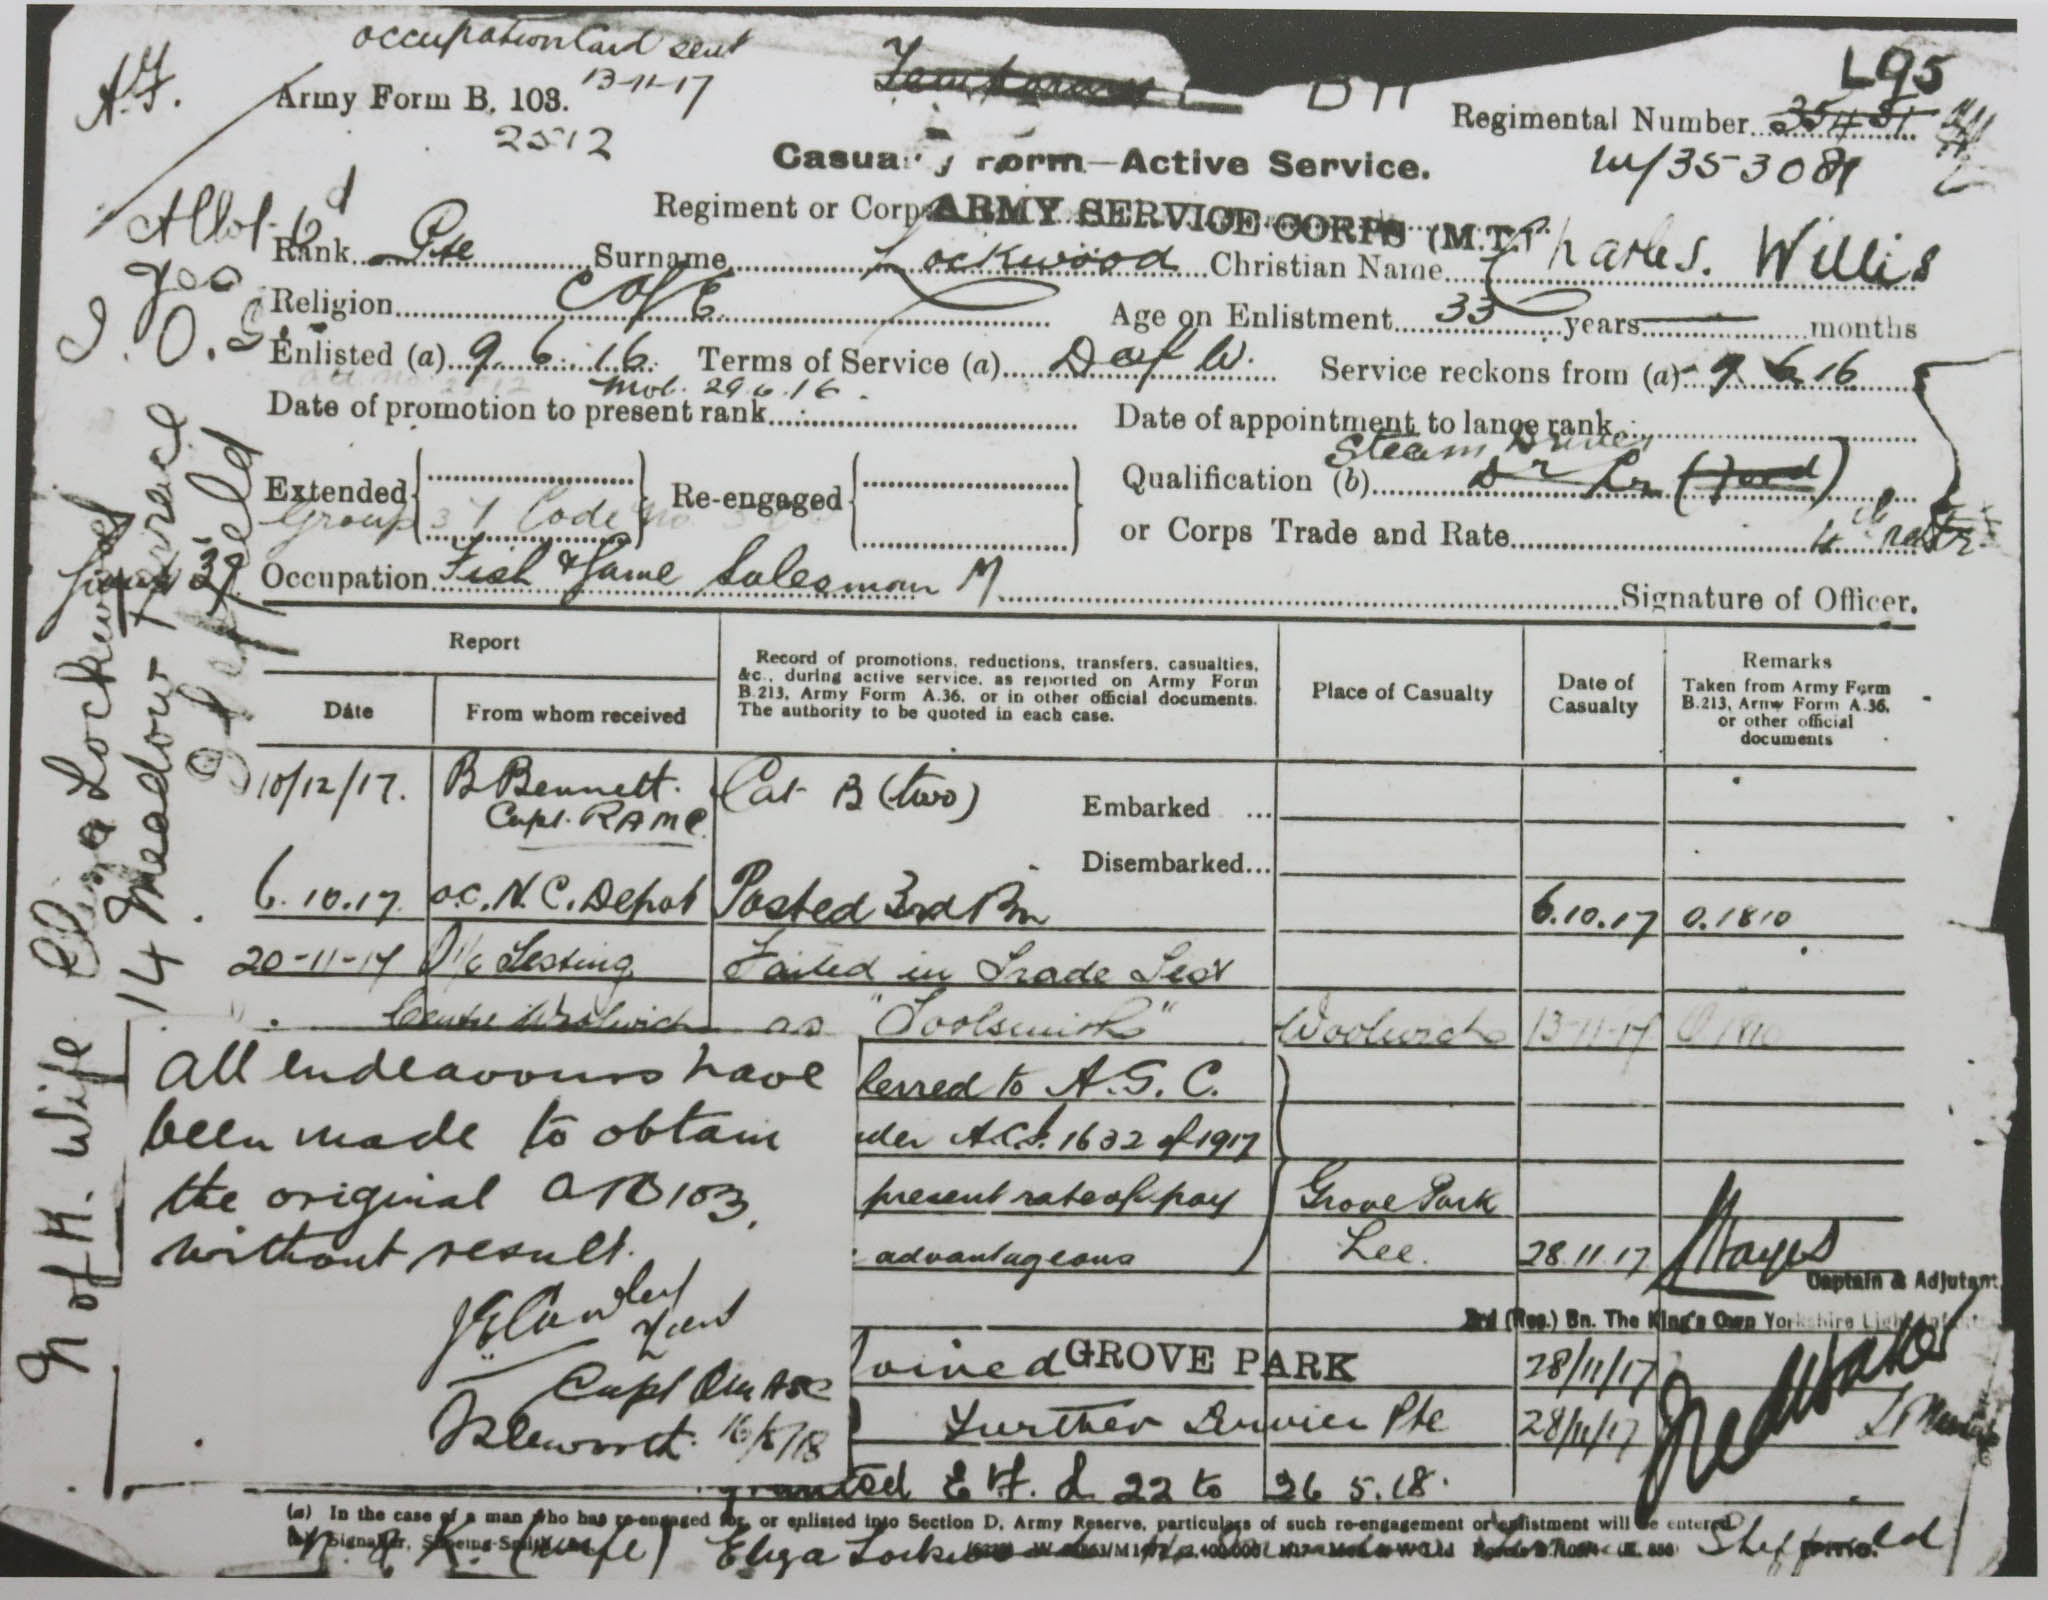 occupation Card sent
13-11-17
A.F.
Army Form B. 103.
2512
L95
Regimental Number
Casua y Form—Active Service.
Regiment or Corps ARMY SERVICE CORPS (M.T.)
Rank Pte Surname Lockwood Christian Name Charles. Willis
Religion C of E Age on Enlistment 33 years — months
Enlisted (a) 9.6.16 Terms of Service (a) D of W. Service reckons from (a) 9 6 16
Mob. 29.6.16.
Date of promotion to present rank Date of appointment to lance rank
Steam Driver
Extended Re-engaged Qualification (b)
Group Code No.
or Corps Trade and Rate
Occupation Fish & Game Salesman M Signature of Officer.
N of K. Wife Eliza Lockwood
14 Meadow Terrace
Sheffield
Report
Date
From whom received
Record of promotions, reductions, transfers, casualties, &c., during active service, as reported on Army Form B.213, Army Form A.36, or in other official documents. The authority to be quoted in each case.
Place of Casualty
Date of Casualty
Remarks
Taken from Army Form B.213, Army Form A.36, or other official documents
10/12/17. B Bennett. Cat B (two) Embarked ...
Capt. RAMC.
Disembarked...
6.10.17 o.c. N.C. Depot Posted 3rd Bn 6.10.17 O.1810
20-11-17 O/c Testing Failed in Trade Test
Centre Woolwich as "Toolsmith" Woolwich 13-11-17 O 1810
All endeavours have
been made to obtain
the original AFB103,
without result.
Capt
16/5/18
ferred to A.S.C.
nder A.C.I. 1632 of 1917
present rate of pay Grove Park
advantageous Lee. 28.11.17 Hayes
Captain & Adjutant
3rd (Res.) Bn. The King's Own Yorkshire Light
Joined GROVE PARK 28/11/17
Further Service Pte 28/11/17
granted E.F.L 22 to 26 5.18.
(a) In the case of a man who has re-engaged for, or enlisted into Section D, Army Reserve, particulars of such re-engagement or enlistment will be entered.
(b) Signaller, Shoeing-Smith
N. of K. (wife) Eliza Lockwood Sheffield